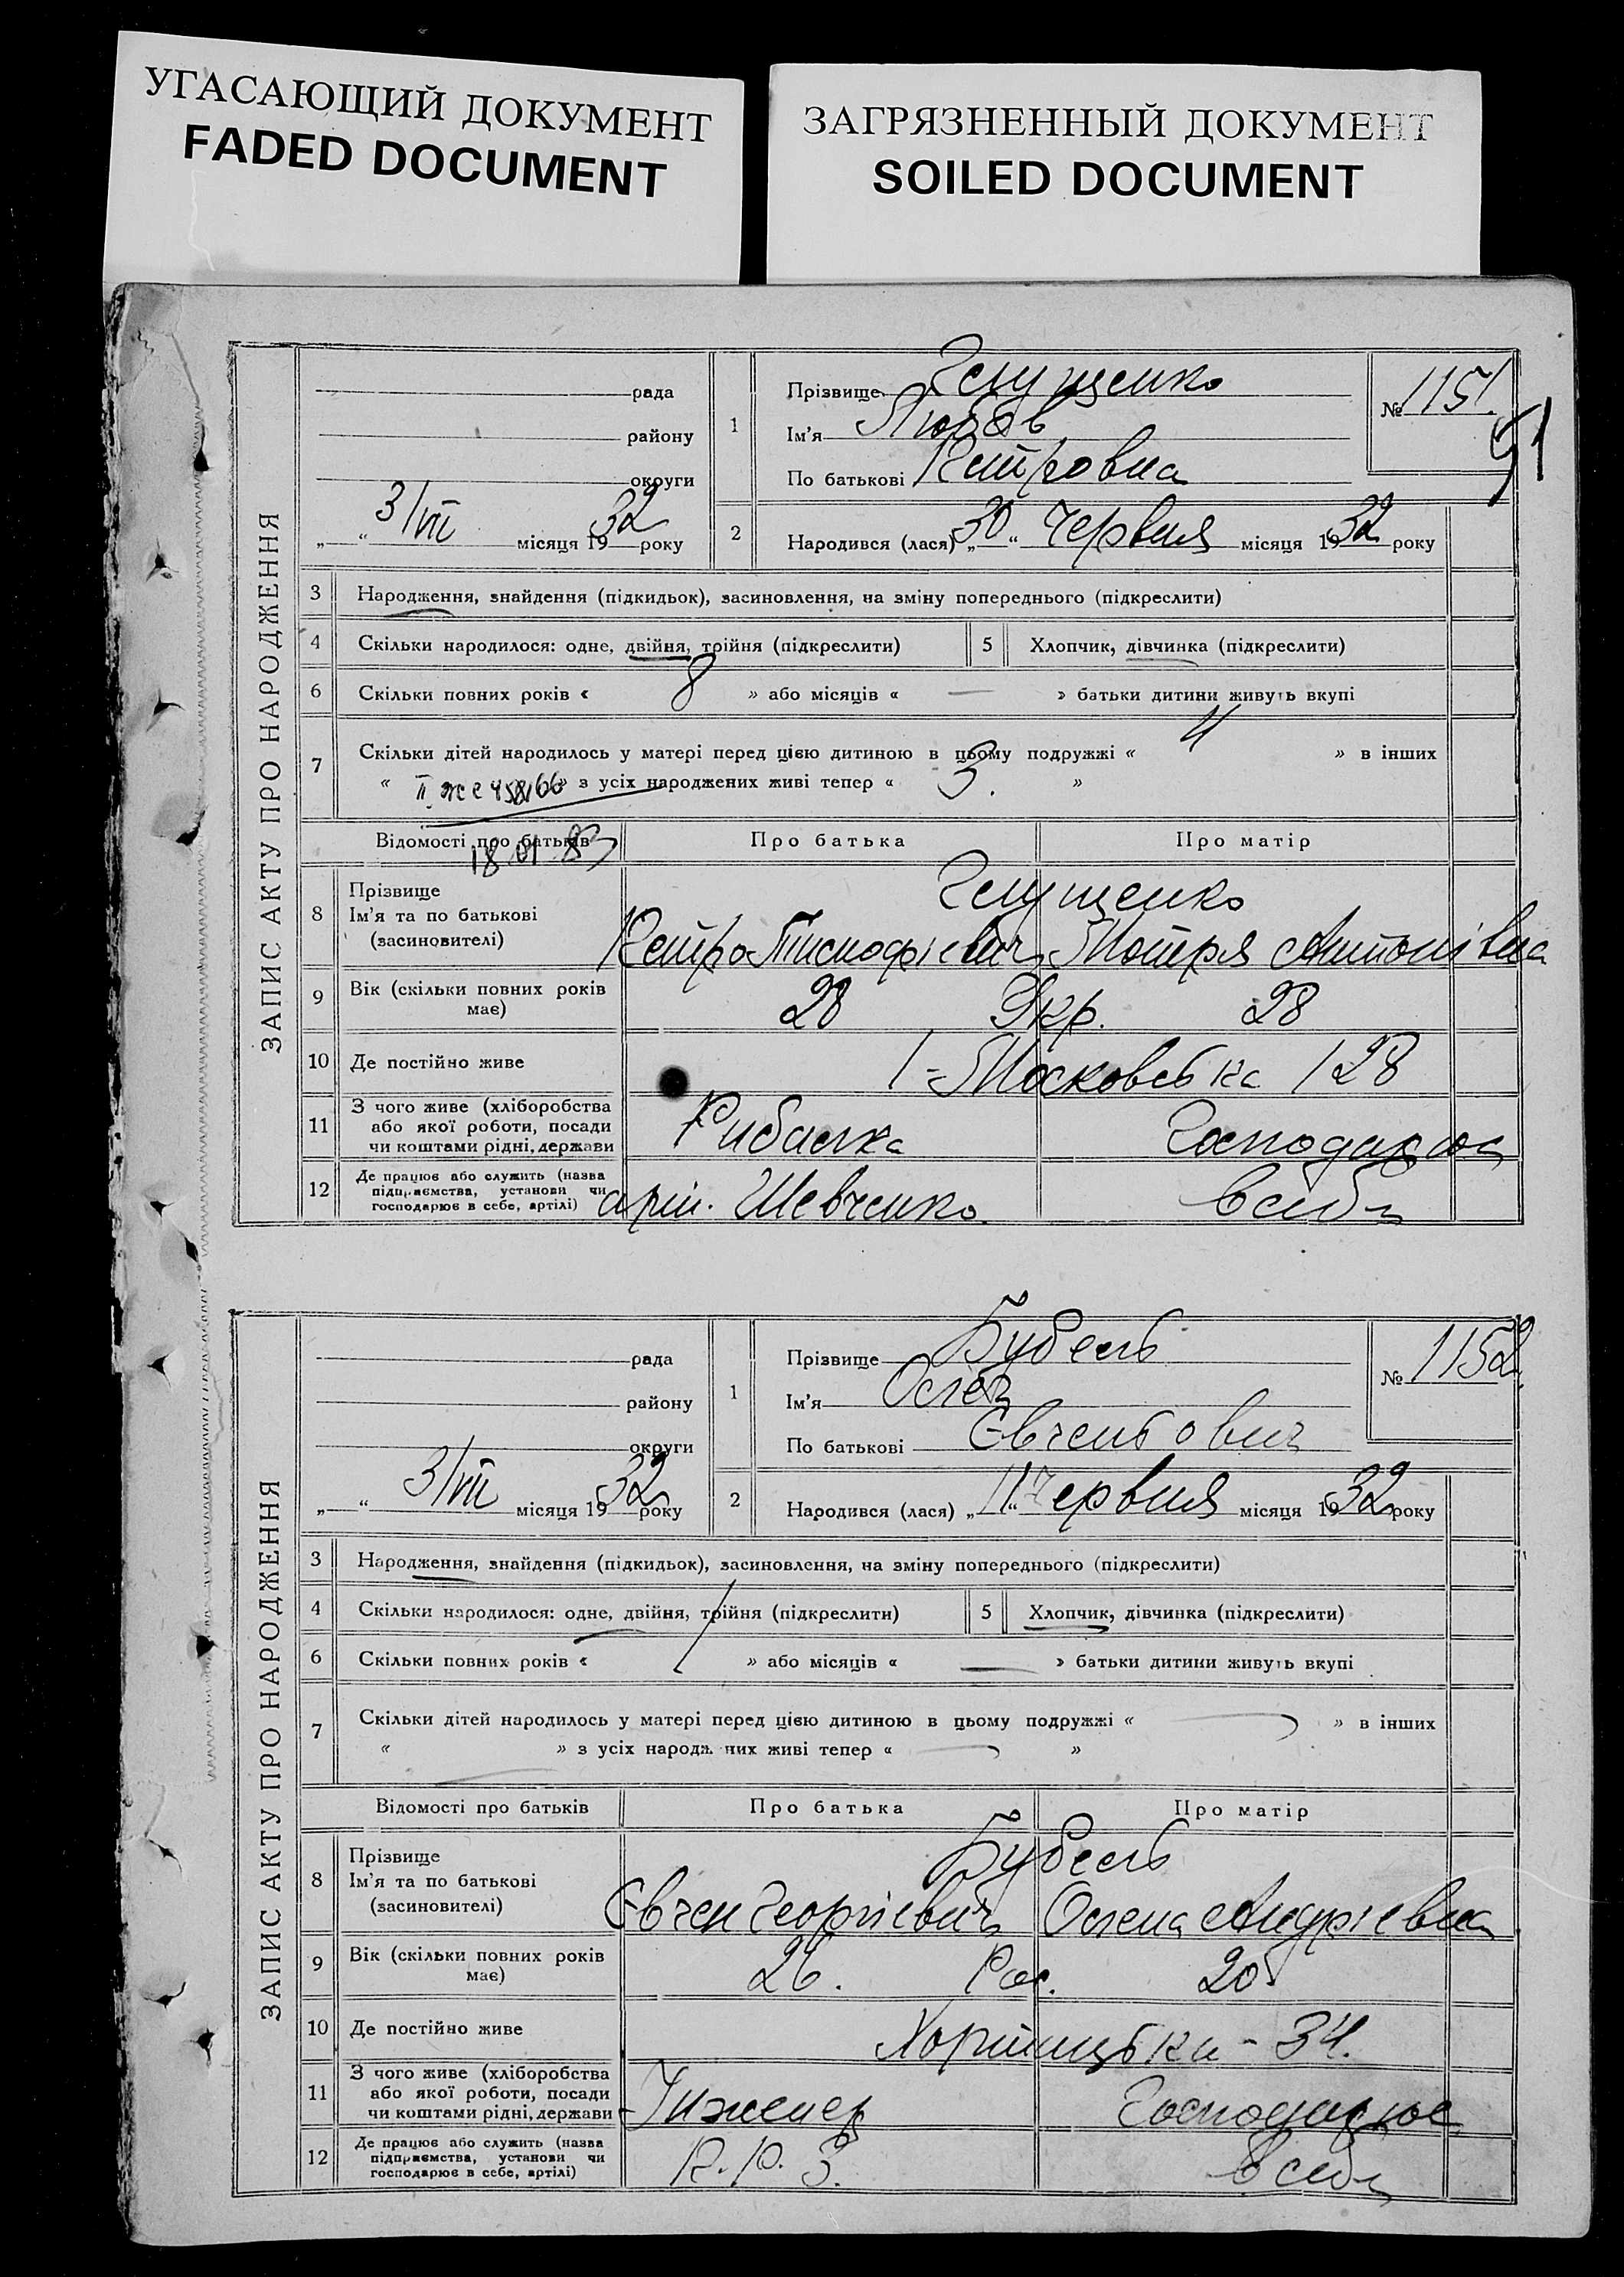 УГАСАЮЩИЙ ДОКУМЕНТ
FADED DOCUMENT
ЗАГРЯЗНЕННЫЙ ДОКУМЕНТ
SOILED DOCUMENT
ЗАПИС АКТУ ПРО НАРОДЖЕННЯ
рада
району
округи
3/VII місяця 1932 року
1 Прізвище
Ім'я Любов
По батькові Петровна
№ 1151
91
2 Народився (лася) „30“ червня місяця 1932 року
3 Народження, знайдення (підкидьок), засиновлення, на зміну попереднього (підкреслити)
4 Скільки народилося: одне, двійня, трійня (підкреслити) 5 Хлопчик, дівчинка (підкреслити)
6 Скільки повних років « 8 » або місяців « — » батьки дитини живуть вкупі
7 Скільки дітей народилось у матері перед цією дитиною в цьому подружжі « 4 » в інших
« » з усіх народжених живі тепер « 3. »
18 01 83
Відомості про батьків Про батька Про матір
8 Прізвище
Ім'я та по батькові
(засиновителі)
Петро Мотря Антонівна
9 Вік (скільки повних років має) 28 Укр. 28
10 Де постійно живе 1-Московська 128
11 З чого живе (хліборобства або якої роботи, посади чи коштами рідні, держави Рибалка Господарює
12 Де працює або служить (назва підприємства, установи чи господарює в себе, артілі) арт. Шевченко в себе
ЗАПИС АКТУ ПРО НАРОДЖЕННЯ
рада
району
округи
3/VII місяця 1932 року
1 Прізвище
Ім'я Олег
По батькові Євгеньович
№ 1152
2 Народився (лася) „11“ червня місяця 1932 року
3 Народження, знайдення (підкидьок), засиновлення, на зміну попереднього (підкреслити)
4 Скільки народилося: одне, двійня, трійня (підкреслити) 5 Хлопчик, дівчинка (підкреслити)
6 Скільки повних років « 1 » або місяців « — » батьки дитини живуть вкупі
7 Скільки дітей народилось у матері перед цією дитиною в цьому подружжі « — » в інших
« — » з усіх народжених живі тепер « — »
Відомості про батьків Про батька Про матір
8 Прізвище
Ім'я та по батькові
(засиновителі)
Євген Георгієвич Олена Андрієвна
9 Вік (скільки повних років має) 26. Рос. 20
10 Де постійно живе Хортицька - 34.
11 З чого живе (хліборобства або якої роботи, посади чи коштами рідні, держави Інженер Господарює
12 Де працює або служить (назва підприємства, установи чи господарює в себе, артілі) в себе